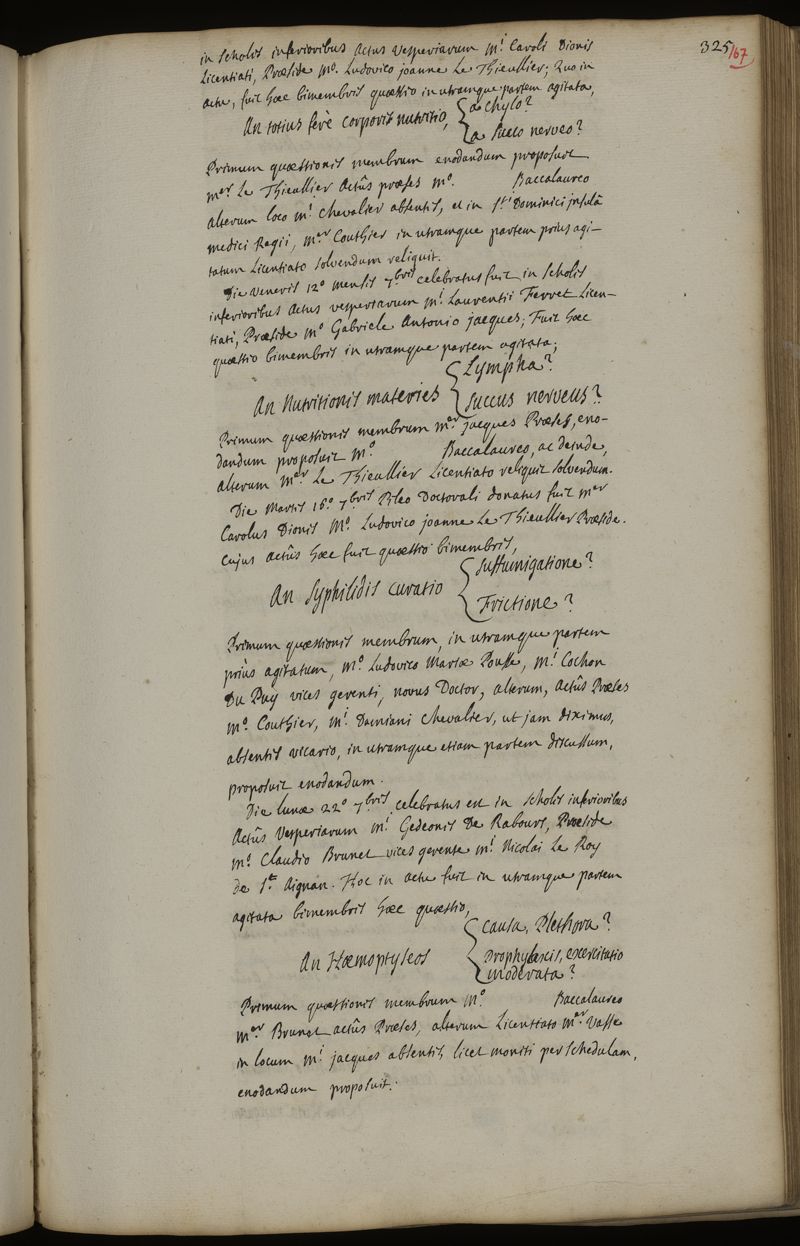 325
167
in scholis inferioribus Actus Vesperiarum Mi. Caroli Dionis
Licentiati, Præside Mo. Ludovico joanne Le Thieullier; Quo in
actu, fuit hæc bimembris quæstio in utramque partem agitata,
An totius ferè corporis nutritio, { a chylo?
a succo nerveo?
Primum quæstionis membrum enodandum proposuit
Mer. Le Thieullier Actûs præses Mo. Baccalaureo
alterum loco Mi. Chevalier absentis, et in Sti. Dominici insulâ
medici Regii, Mer. Couthier in utramque partem priùs agi-
tatum Licentiato solvendum reliquit.
Die Veneris 12° mensis 7bris celebratus fuit in scholis
inferioribus Actus vesperiarum Mi. Laurentii Ferret Licen-
tiati, Præside Mo Gabriele Antonio jacques; Fuit hæc
quæstio bimembris in utramque partem agitata;
An Nutritionis materies { Lympha?
succus nerveus?
Primum quæstionis membrum Mer jacques Præses, eno-
dandum proposuit Mo. Baccalaureo, ac deinde,
alterum Mer Le Thieullier Licentiato reliquit solvendum.
Die Martis 16° 7bris Pileo Doctorali donatus fuit Mer
Carolus Dionis Mo. Ludovico joanne Le Thieullier Præside.
Cujus actûs hæc fuit quæstio bimembris,
An Syphilidis curatio { suffumigatione?
Frictione?
Primum quæstionis membrum, in utramque partem
priùs agitatum, Mo. Ludovico Mariæ Pousse, Mi. Cochon
Du Puy vices gerenti, novus Doctor, alterum, Actûs Præses
Mo. Couthier, Mi. Damiani Chevalier, ut jam diximus,
absentis vicario, in utramque etiam partem discussum,
proposuit enodandum.
Die lunæ 22° 7bris celebratus est in scholis inferioribus
Actûs Vesperiarum Mi. Gedeonis De Rabours, Præside
Mo. Claudio Brunet vices gerente Mi. Nicolai Le Roy
de St. Aignan. Hoc in actu fuit in utramque partem
agitata bimembris hæc quæstio,
An Hæmoptyseos { causa, Plethora?
Prophylaxis, exercitatio
moderata?
Primum quæstionis membrum Mo. Baccalaureo
Mer. Brunet actûs Præses, alterum Licentiato Mer. Vasse
in locum Mi. jacques absentis, licet moniti per schedulam,
enodandum proposuit.